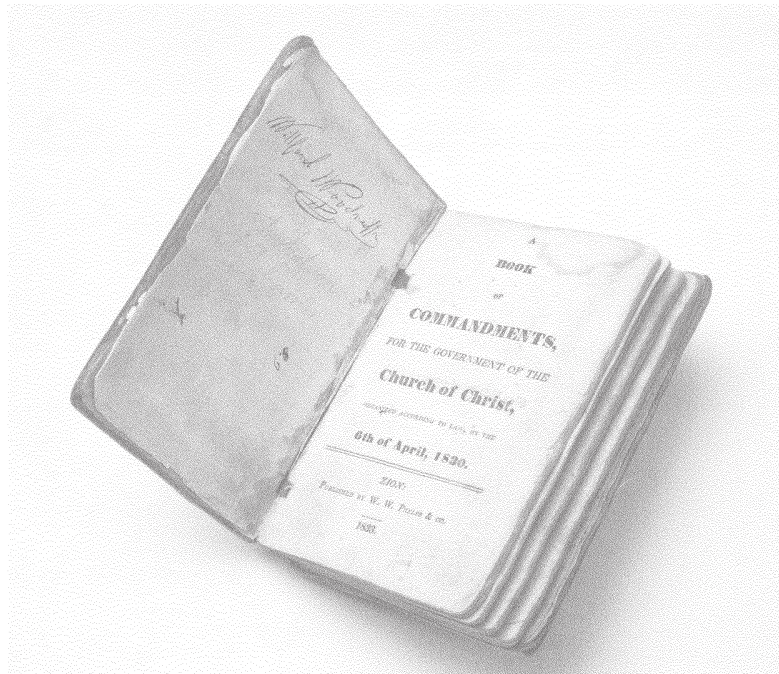 Wilford Woodruff
A
BOOK
OF
COMMANDMENTS,
FOR THE GOVERNMENT OF THE
Church of Christ,
ORGANIZED ACCORDING TO LAW, ON THE
6th of April, 1830.
ZION:
PUBLISHED BY W. W. PHELPS & CO.
1833.